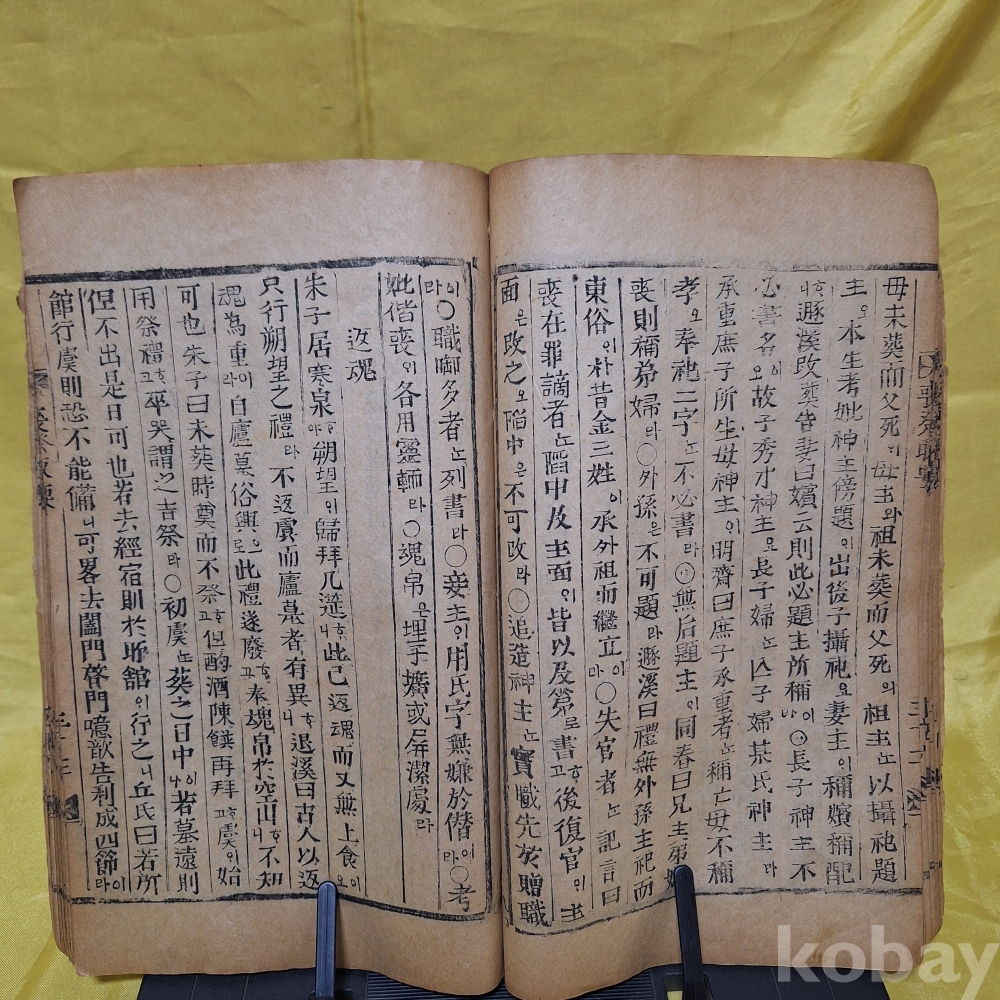 母未葬而父死의母主와祖未葬而父死의祖主는以攝祀題
主오本生考妣神主傍題의出後子攝祀요妻主의稱嬪稱配
니遯溪改葬皆妻曰嬪云則此必題主所稱이라〇長子神主는不
必書名이오故子秀才神主요長子婦는亡子婦某氏神主라
承重庶子所生母神主의明齋曰庶子承重者는稱亡母不稱
孝오奉祀二字는不必書라〇無后題主의同春曰兄主弟
喪則稱弟婦라〇外孫은不可題라遯溪曰禮無外孫主祀而
東俗의朴昔金三姓이承外祖而繼立이라〇失官者는記言曰
喪在罪謫者는陷中及主面의皆以及第로書고後復官의主
面은改之오陷中은不可改라〇追造神主는實職先於贈職
이라〇職啣多者는列書라〇妾主의用氏字無嫌於僭이라〇考
妣偕喪의各用靈輀라〇魂帛은埋于壙或屛潔處라
返魂
朱子居寒泉야朔望의歸拜几筵니此已返魂而又無上食이오
只行朔望之禮라不返虞而廬墓者有異니退溪曰古人以返
魂為重이라自廬墓俗興으로此禮遂廢고奉魂帛於空山니不知
可也朱子曰未葬時奠而不祭고但酌酒陳饌再拜고虞의始
用祭禮고卒哭謂之吉祭라〇初虞는葬之日中이나若墓遠則
但不出是日可也若去經宿則於所舘의行之니丘氏曰若所
館行虞則恐不能備니可畧去闔門啓門噫歆告利成四節이라
喪祭輯要
三十二
kobay